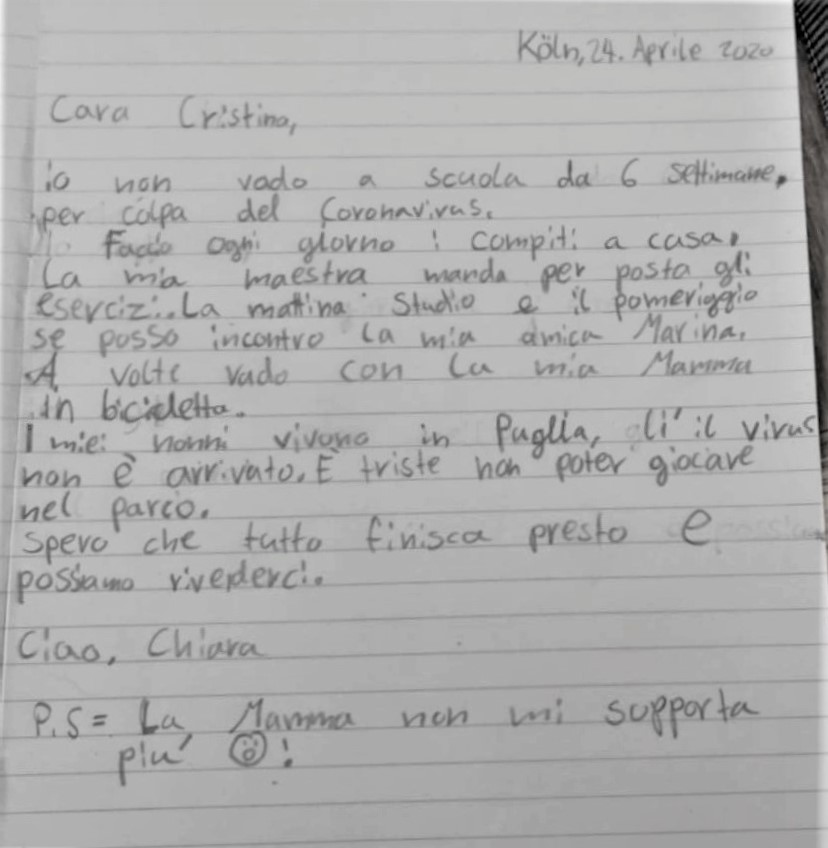 Köln, 24. Aprile 2020
Cara Cristina,
io non vado a scuola da 6 settimane,
per colpa del Coronavirus.
Faccio ogni giorno i compiti a casa.
La mia maestra manda per posta gli
esercizi. La mattina studio e il pomeriggio
se posso incontro la mia amica Marina.
A volte vado con la mia Mamma
in bicicletta.
I miei nonni vivono in Puglia, li' il virus
non è arrivato. È triste non poter giocare
nel parco.
Spero che tutto finisca presto e
possiamo rivederci.
Ciao, Chiara
P.S = La Mamma non mi supporta
piu' ☹!